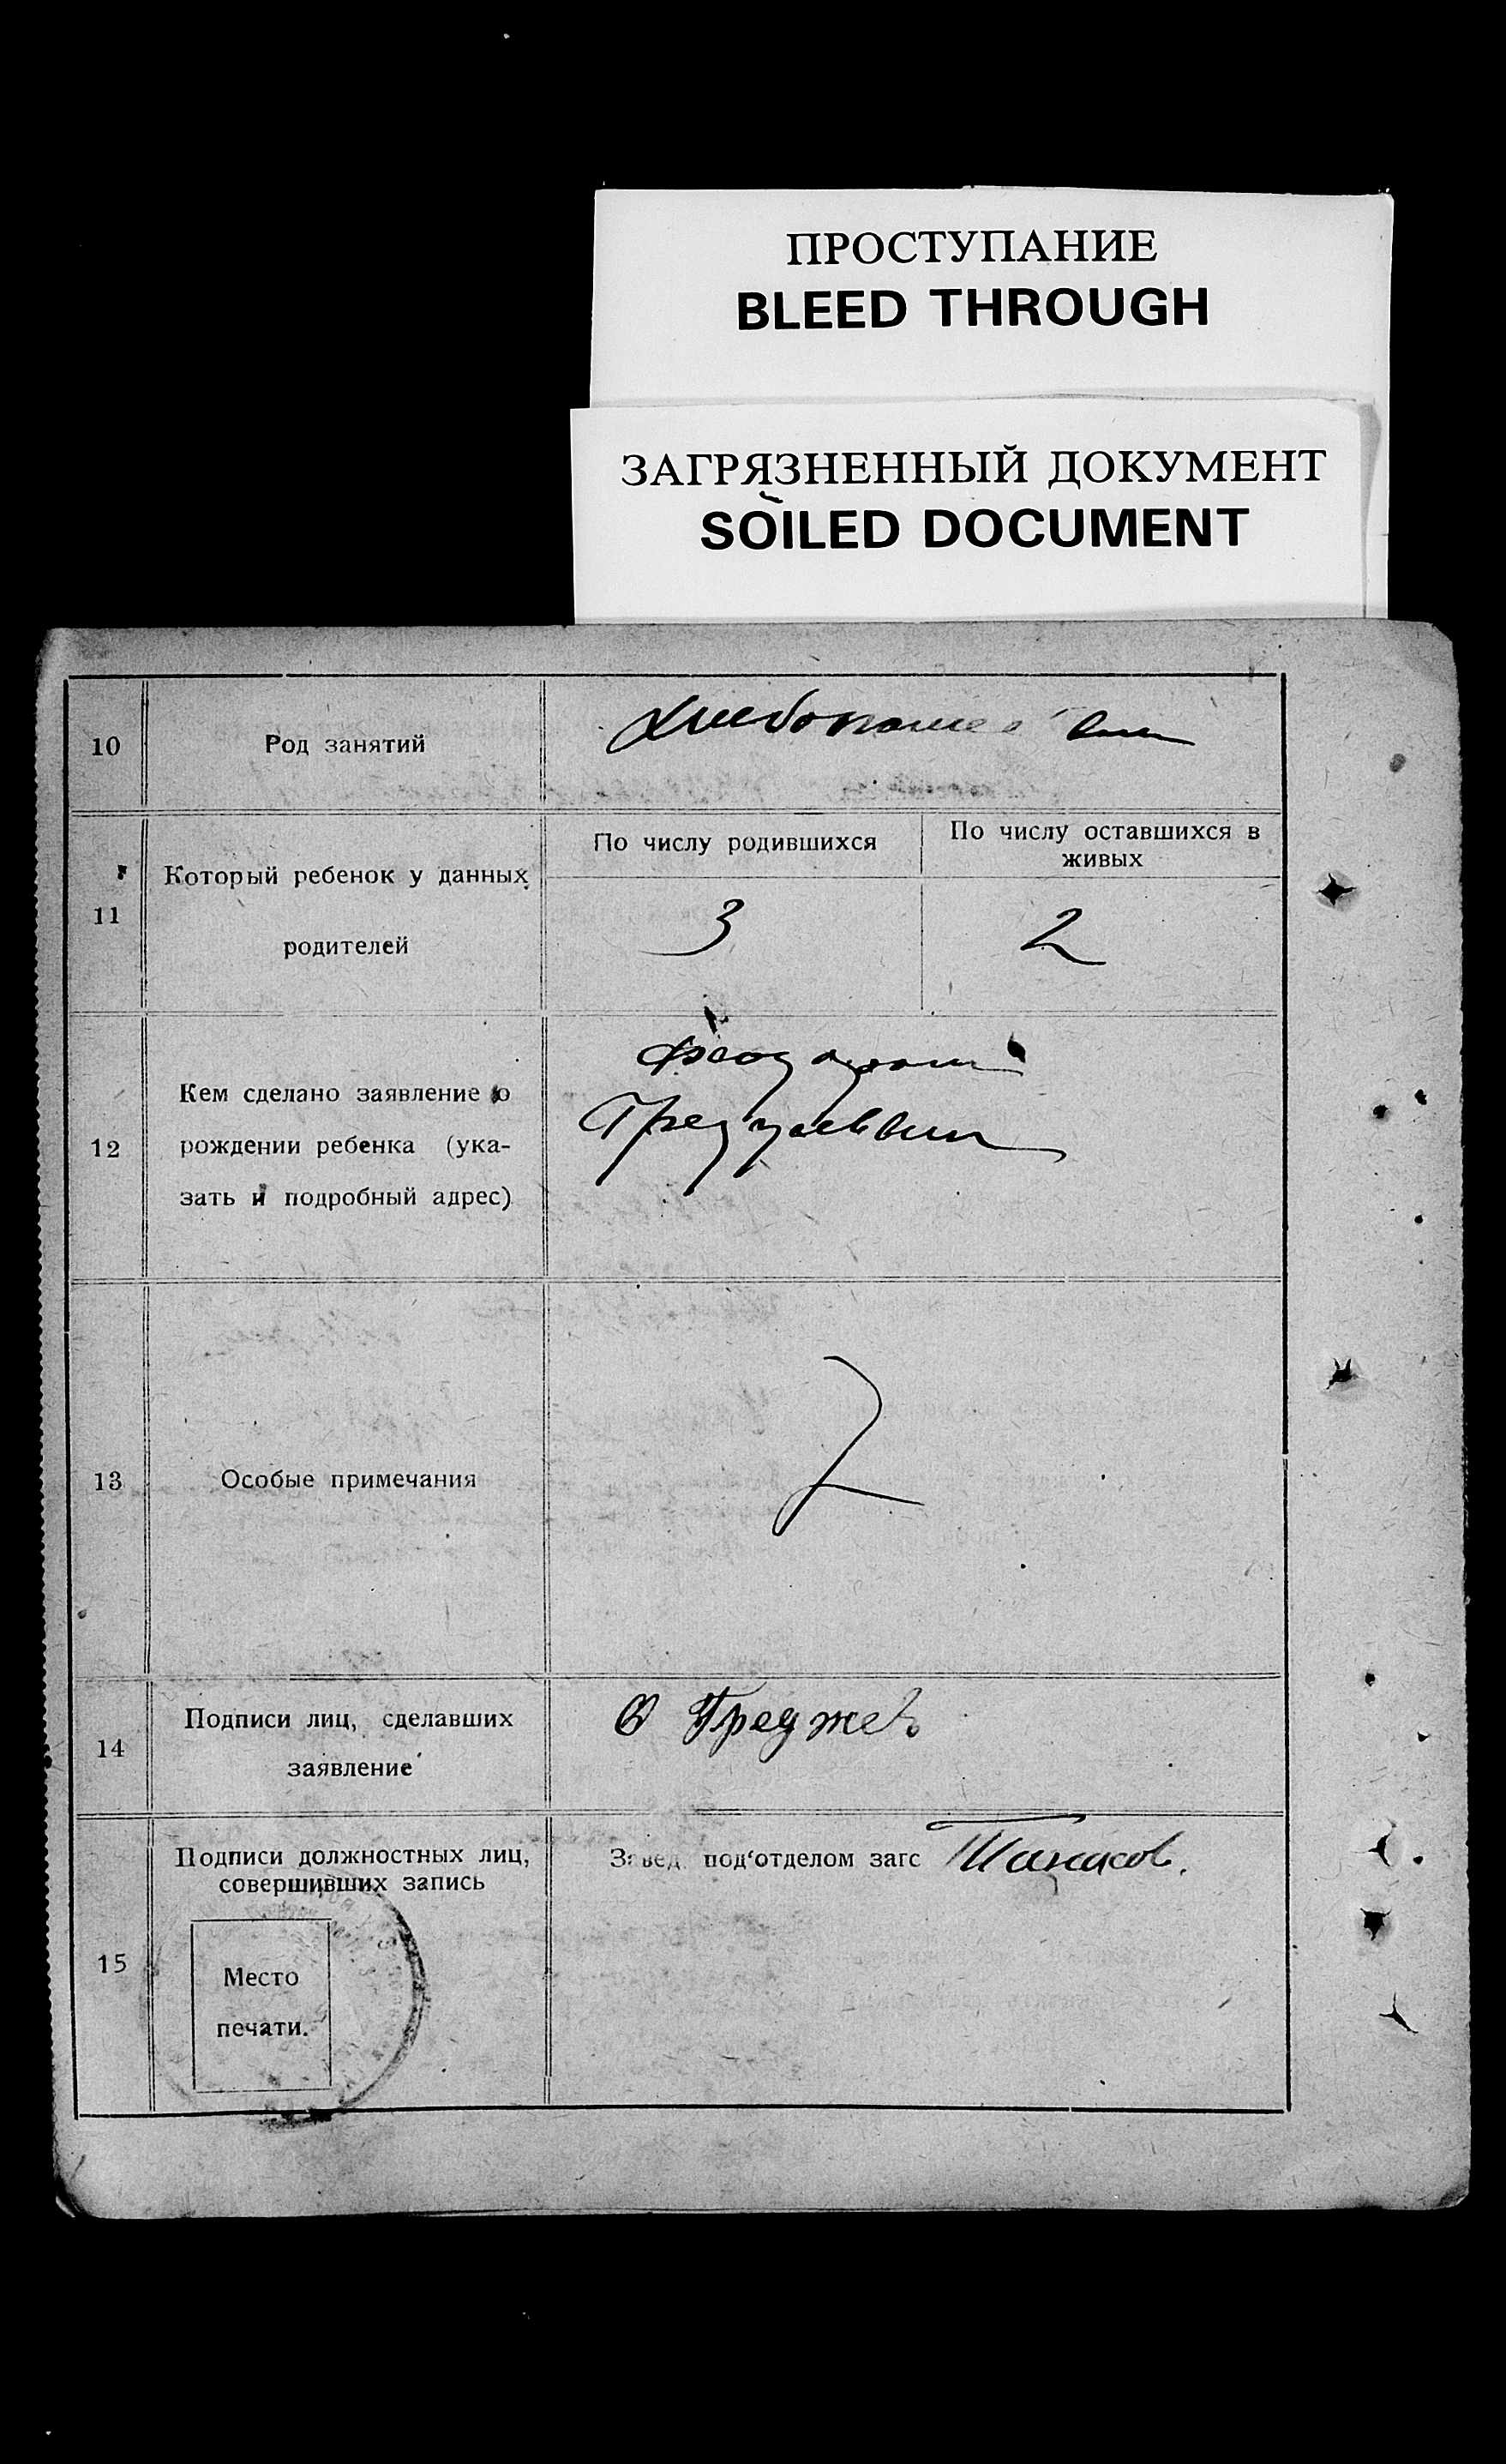 ПРОСТУПАНИЕ
BLEED THROUGH
ЗАГРЯЗНЕННЫЙ ДОКУМЕНТ
SOILED DOCUMENT
10
Род занятий
По числу родившихся
По числу оставшихся в
живых
11
Который ребенок у данных
родителей
3
2
12
Кем сделано заявление о
рождении ребенка (ука-
зать и подробный адрес)
13
Особые примечания
14
Подписи лиц, сделавших
заявление
15
Подписи должностных лиц,
совершивших запись
Завед. под'отделом загс
Место
печати.